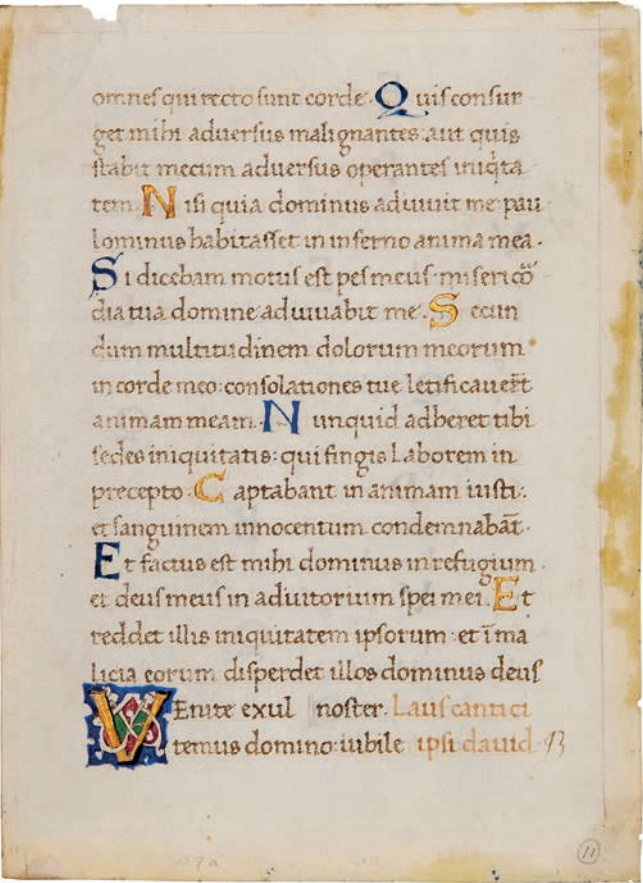 omnes qui recto sunt corde. Quis consur
get mihi adversus malignantes: aut quis
stabit mecum adversus operantes iniq̇ta
tem. Nisi quia dominus adiuuit me: pau
lominus habitasset in inferno anima mea.
Si dicebam motus est pes meus: misericō
dia tua domine adiuuabit me. Secun
dum multitudinem dolorum meorum
in corde meo: consolationes tue letificauer̄t
animam meam. Nunquid adheret tibi
sedes iniquitatis: qui fingis laborem in
precepto. Captabant in animam iusti:
et sanguinem innocentum condemnabāt.
Et factus est mihi dominus in refugium.
et deus meus in adiutorium spei mei. Et
reddet illis iniquitatem ipsorum: et ī ma
licia eorum disperdet illos dominus deus
VEnite exul noster. Laus cantici
temus domino: iubile ipsi dauid 93
11